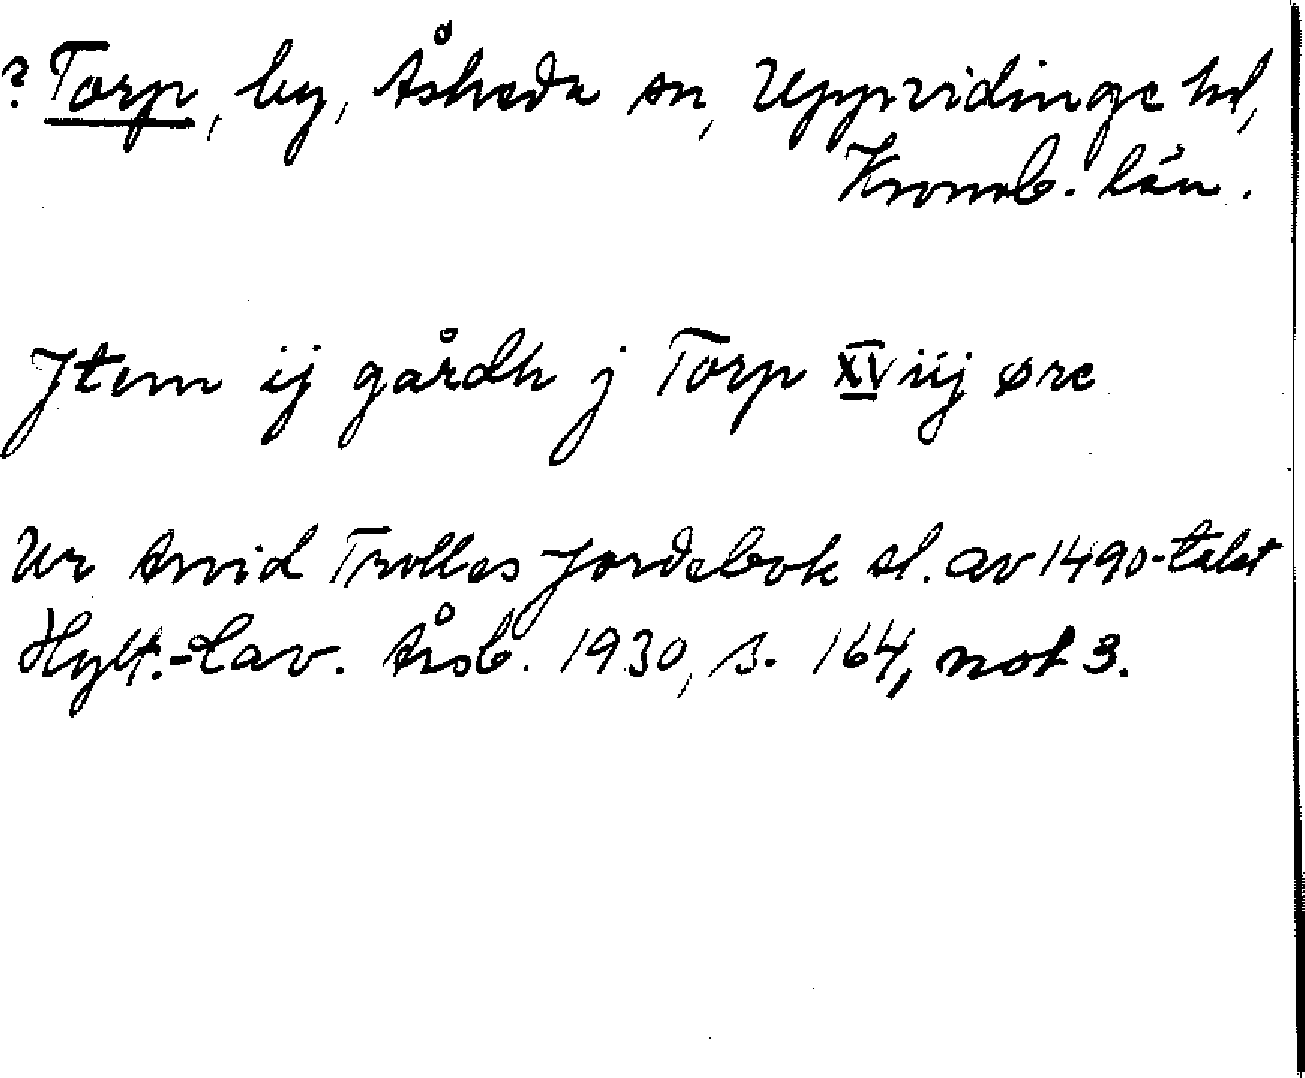 ? Torp, by, Åsheda sn, Uppvidinge hd,
Kronob. län.
Jtem ij gårdh j Torp XViij øre
Ur Arvid Trolles Jordebok sl. av 1490-talet
Hylt.-Cav. Årsb. 1930, s. 164, not 3.